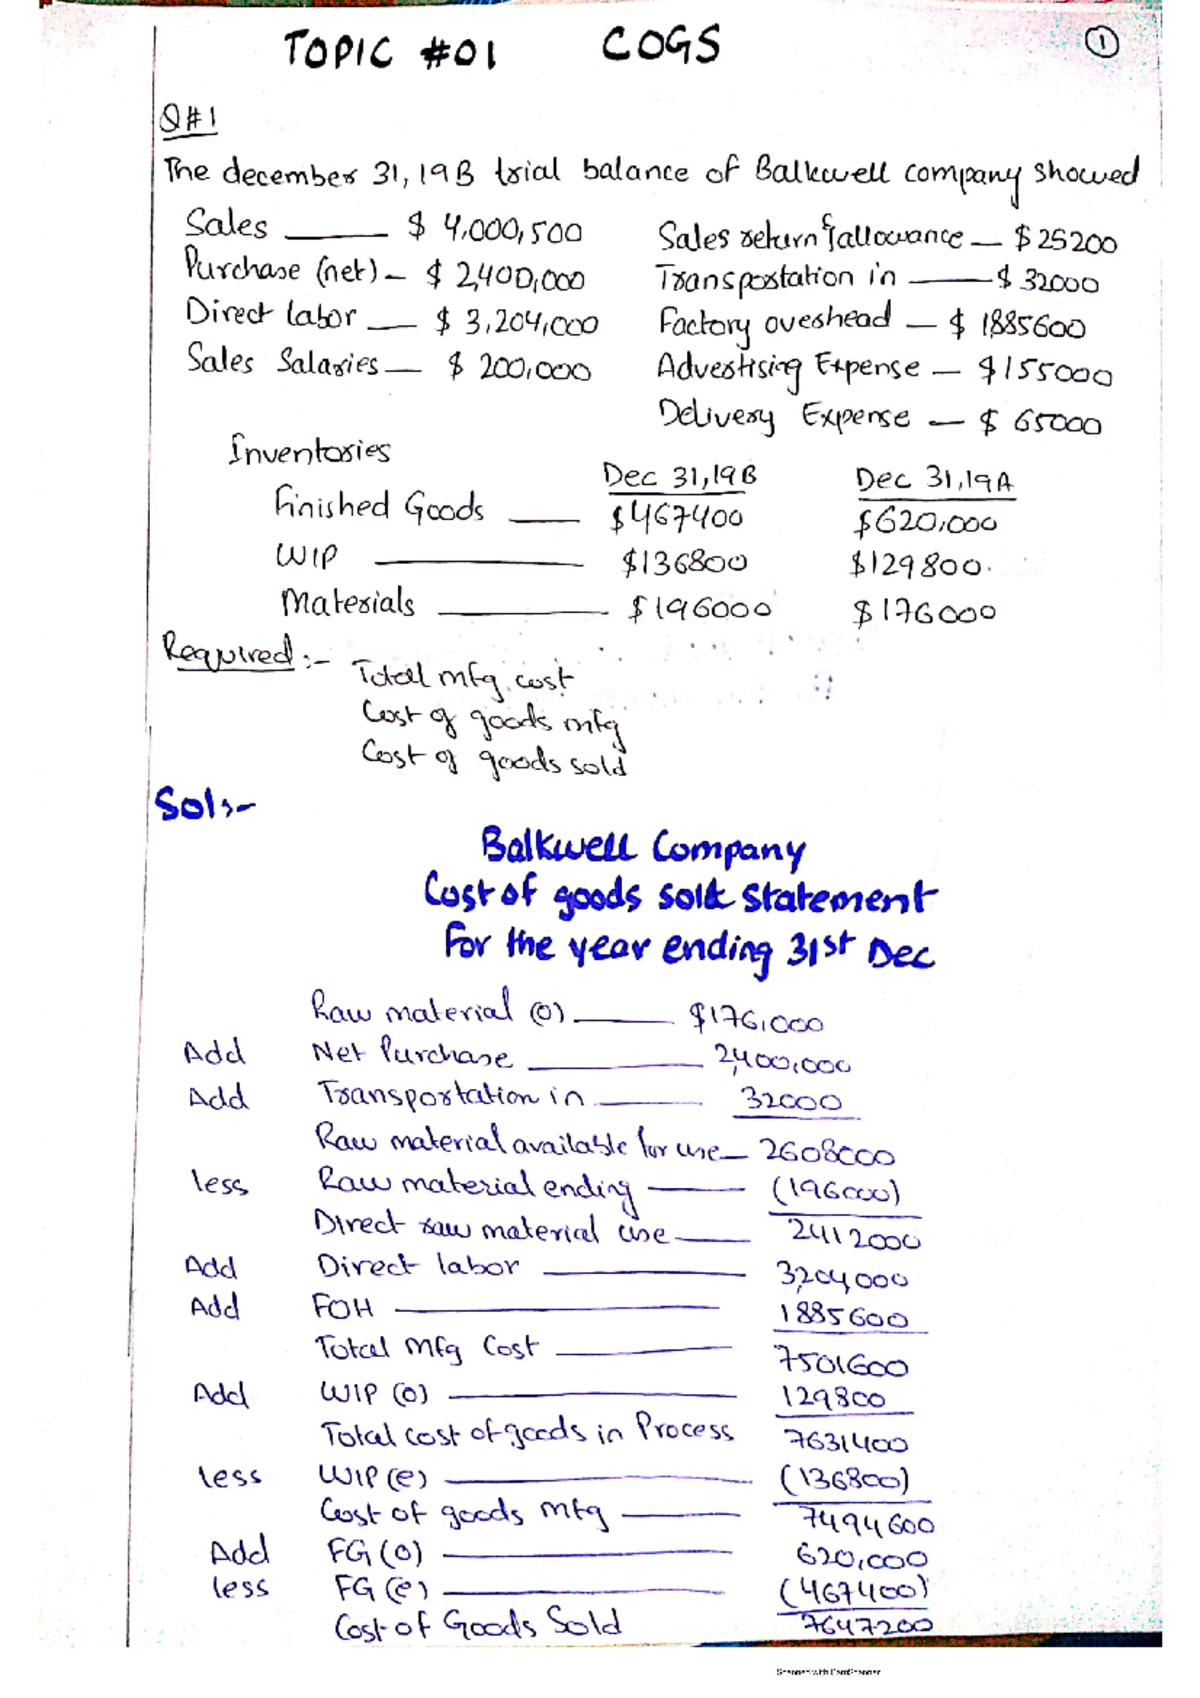 TOPIC #01 COGS 1
Q#1
The december 31, 19B trial balance of Balkwell company showed
Sales $ 4,000,500 Sales return & allowance — $25200
Purchase (net) — $ 2,400,000 Transportation in — $ 32000
Direct labor — $ 3,204,000 Factory overhead — $ 1885600
Sales Salaries — $ 200,000 Advertising Expense — $155000
Delivery Expense — $ 65000
Inventories
Dec 31,19B Dec 31,19A
Finished Goods — $467400 $620,000
WIP — $136800 $129800.
Materials — $196000 $176000
Required:- Total mfg. cost
Cost of goods mfg
Cost of goods sold
Sol:-
Balkwell Company
Cost of goods sold Statement
For the year ending 31st Dec
Raw material (O) — $176,000
Add Net Purchase — 2,400,000
Add Transportation in — 32000
Raw material available for use — 2608000
less Raw material ending — (196000)
Direct raw material use — 2412000
Add Direct labor — 3,204,000
Add FOH — 1885600
Total Mfg Cost — 7501600
Add WIP (O) — 129800
Total cost of goods in Process 7631400
less WIP (e) — (136800)
Cost of goods mfg — 7494600
Add FG (O) — 620,000
less FG (e) — (467400)
Cost of Goods Sold 7647200
Scanned with CamScanner